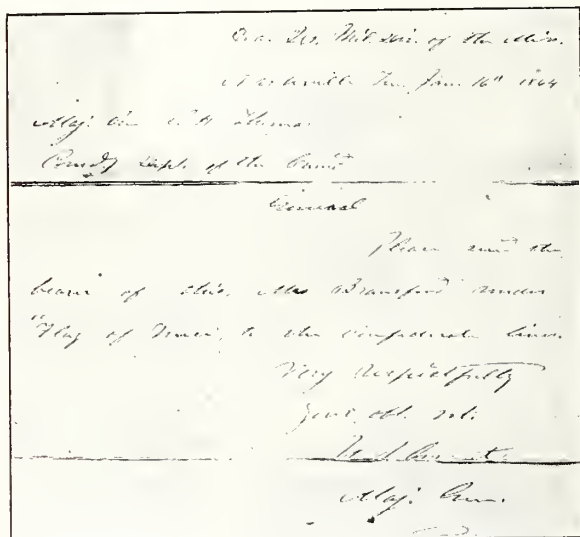 Hd. Qrs. Mil. Div. of the Miss.
Nashville Ten. Jan. 16th 1864
Maj. Gen. G. H. Thomas
Comd'g Dept. of the Cumd.
General
Please send the
bearer of this, Mrs Bransford under
"Flag of Truce", to the confederate lines.
Very respectfully
your obt. svt.
U. S. Grant.
Maj. Gen.